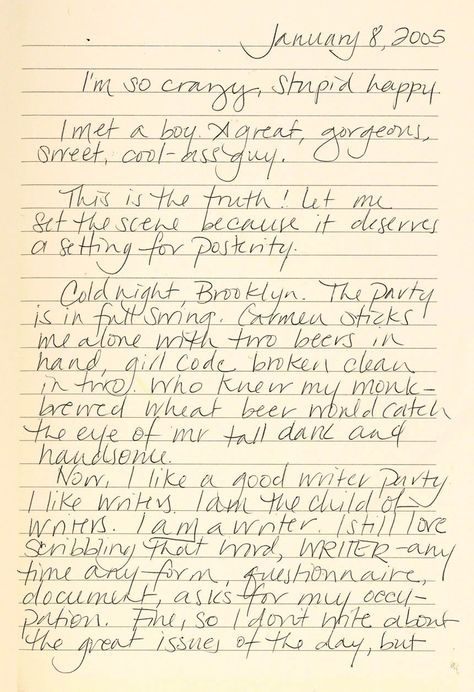 January 8, 2005
I'm so crazy, stupid happy.
I met a boy. A great, gorgeous,
sweet, cool-ass guy.
This is the truth! Let me
set the scene because it deserves
a setting for posterity.
Cold night, Brooklyn. The party
is in full swing. Carmen sticks
me alone with two beers in
hand, girl code broken clean
in two. Who knew my monk-
brewed wheat beer would catch
the eye of mr tall dark and
handsome.
Now, I like a good writer party
I like writers. I am the child of
writers. I am a writer. I still love
scribbling that word, WRITER-any
time any form, questionnaire,
document, asks for my occu-
pation. Fine, so I don't write about
the great issues of the day, but